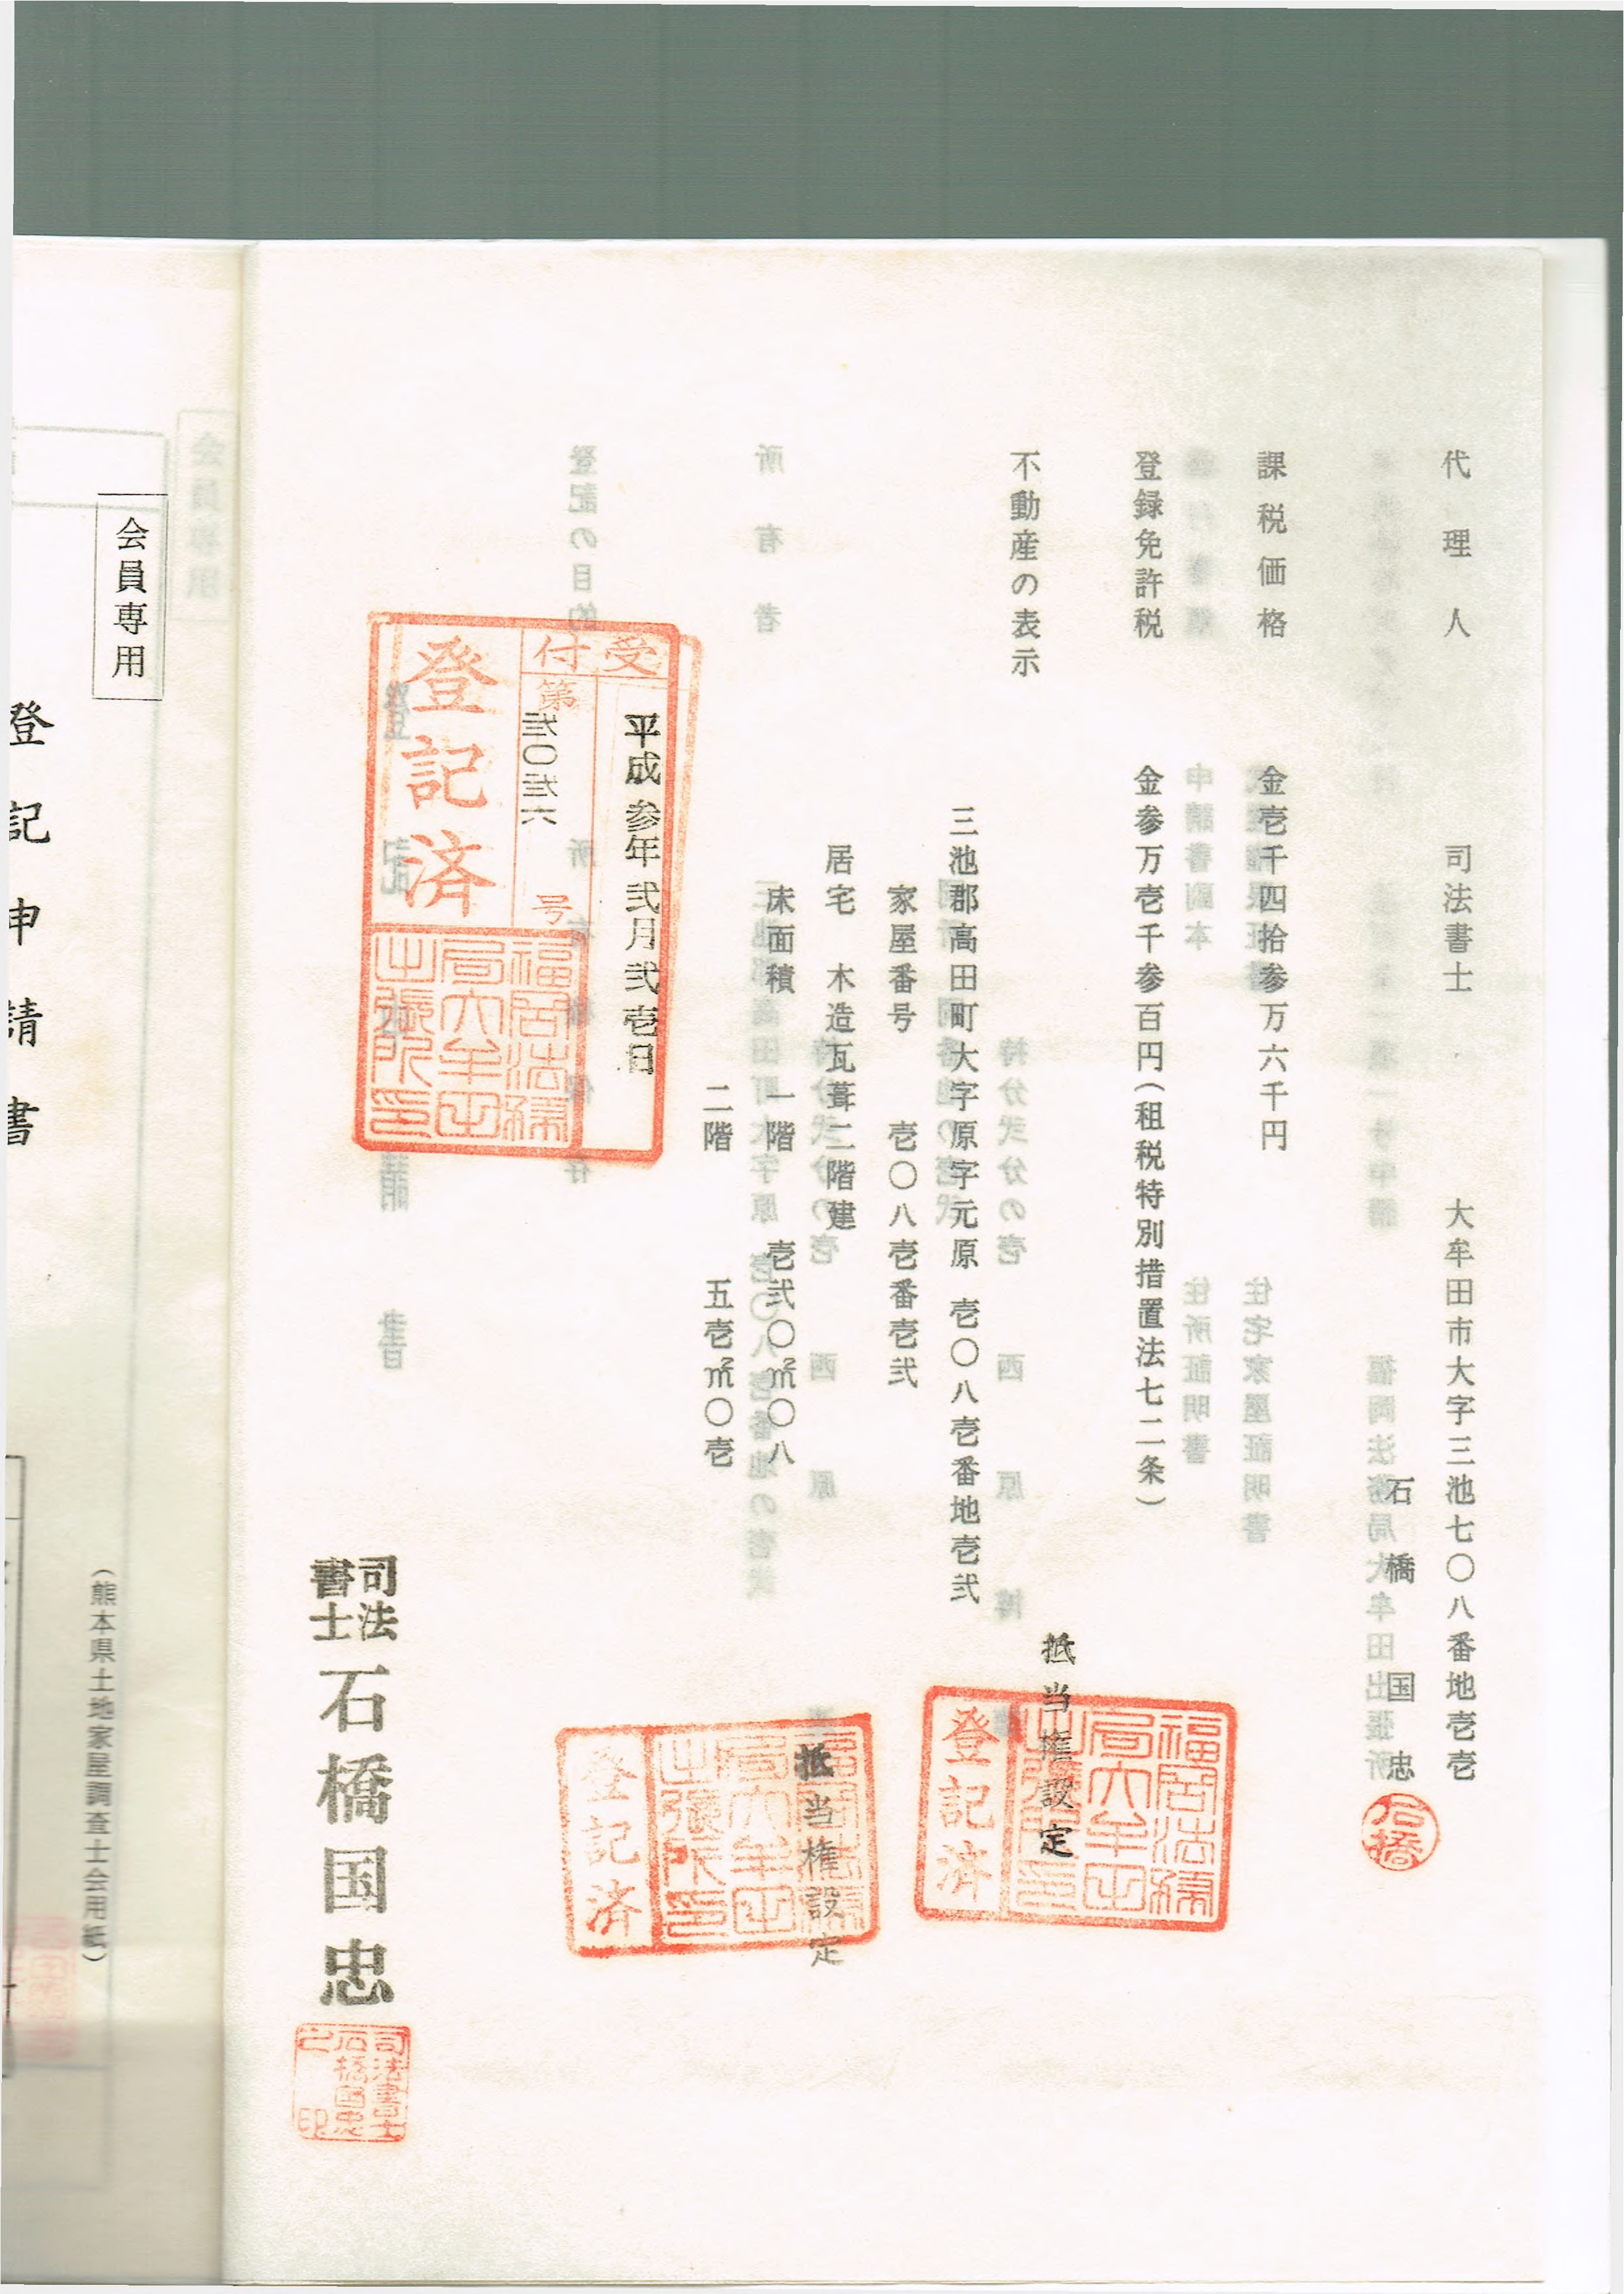 代理人　大牟田市大字三池七〇八番地壱壱
司法書士　石橋国忠
石橋
課税価格　金壱千四拾参万六千円
登録免許税　金参万壱千参百円（租税特別措置法七二条）
不動産の表示
三池郡高田町大字原字元原　壱〇八壱番地壱弐
家屋番号　壱〇八壱番壱弐
居宅　木造瓦葺二階建
床面積　一階　壱弐〇㎡〇八
二階　五壱㎡〇壱
抵当権設定
登記済
抵当権設定
登記済
受付
平成参年弐月弐壱日
第
号
登記済
司法書士　石橋国忠
司法書士石橋国忠之印
会員専用
（熊本県土地家屋調査士会用紙）
登記申請書